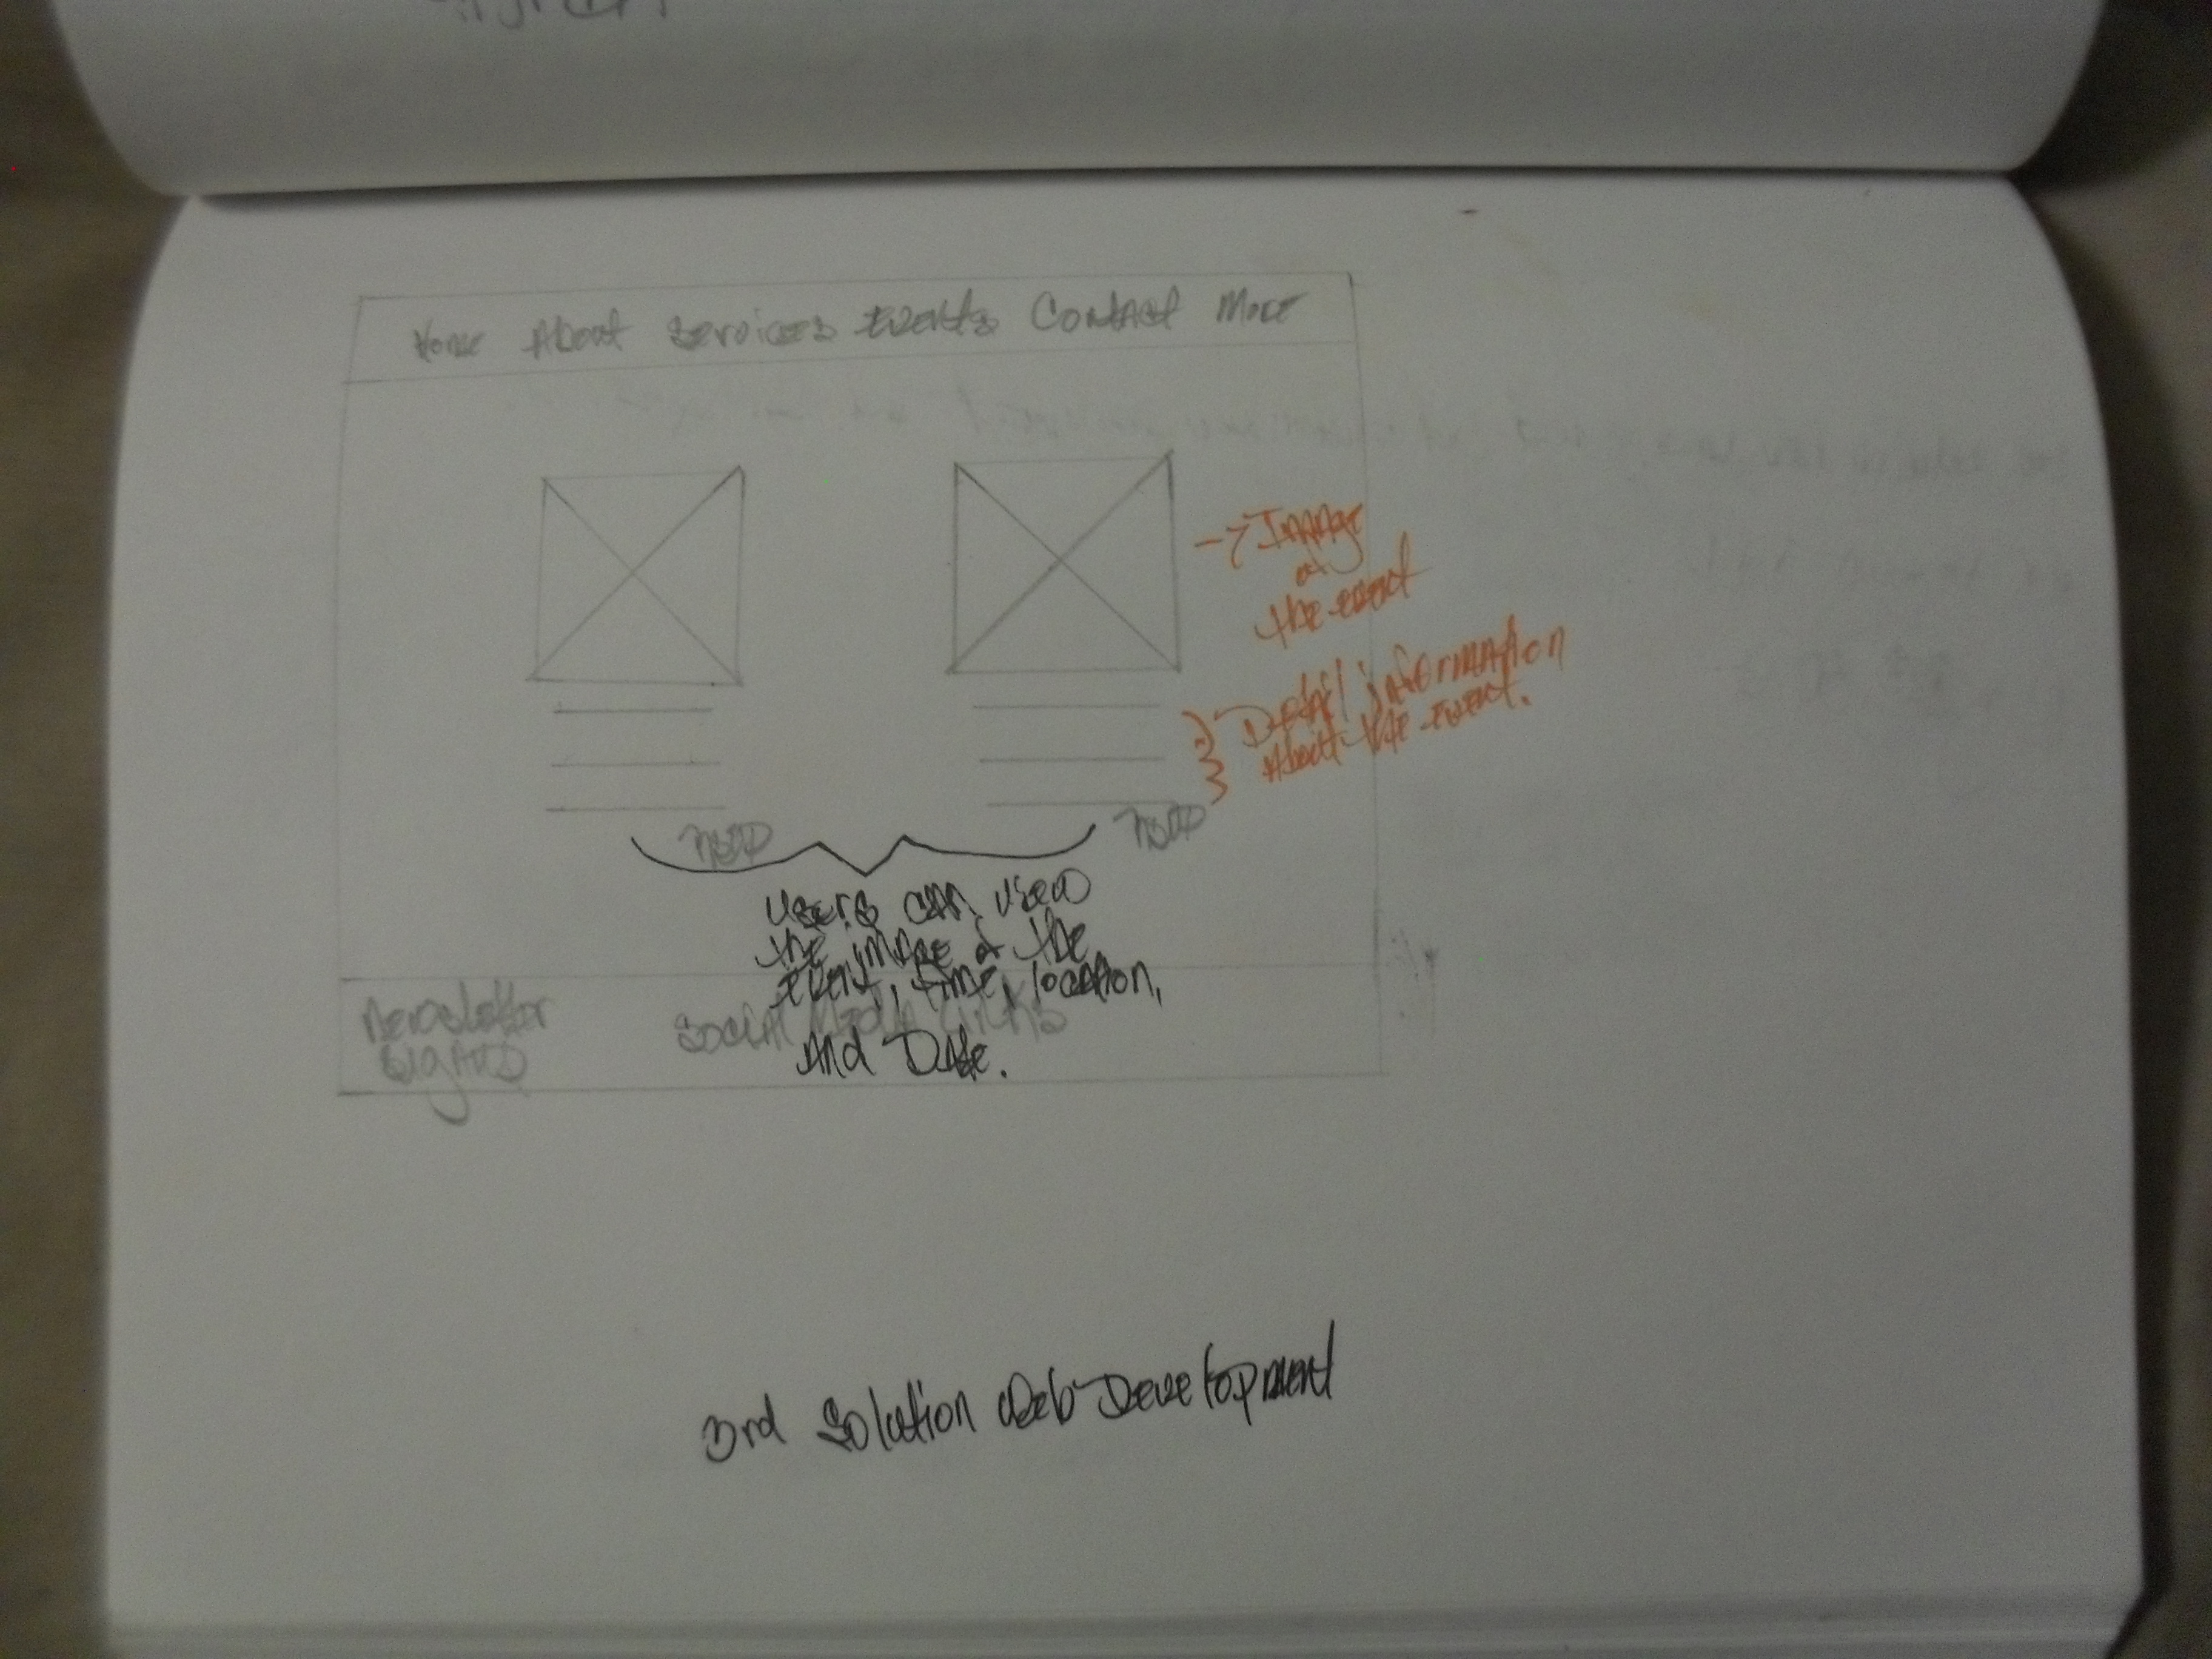 Home About Services Events Contact More
→ Image
of
the event
Detail information
About the event.
RSVP
RSVP
Users can view
the image of the
event, time, location,
and Date.
Newsletter
Sign Up
Social Media Links
3rd Solution Web Development